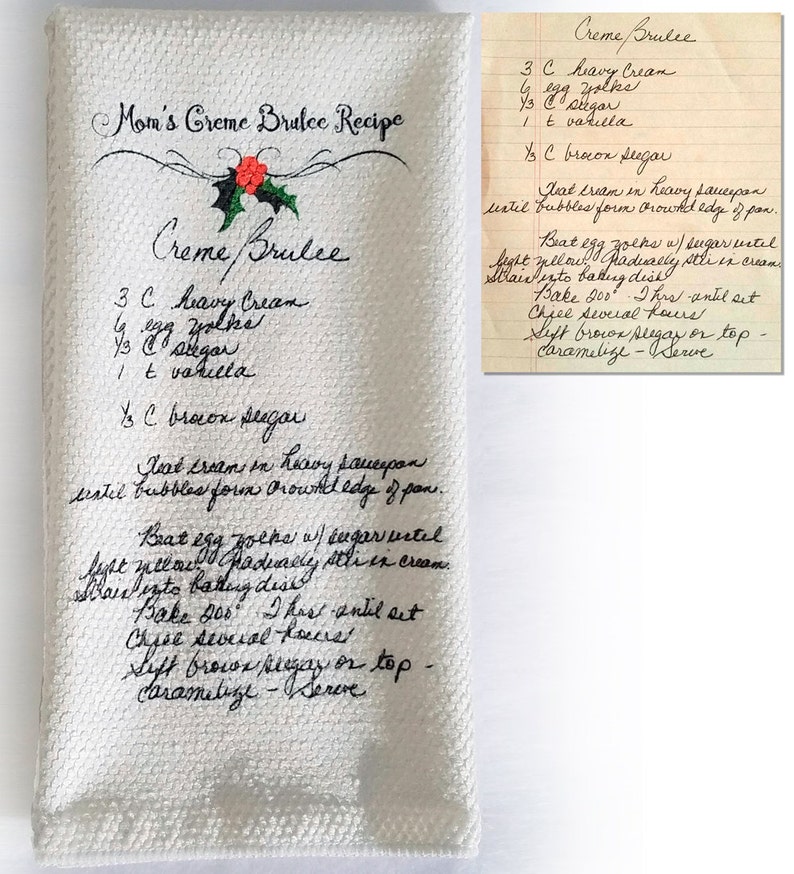 Mom's Creme Brulee Recipe
Creme Brulee
3 C heavy cream
6 egg yolks
1/3 C sugar
1 t vanilla
1/3 C brown sugar
Heat cream in heavy saucepan
until bubbles form around edge of pan.
Beat egg yolks w/ sugar until
light yellow. Gradually stir in cream.
Strain into baking dish
Bake 200° 2 hrs - until set
Chill several hours
Sift brown sugar on top -
caramelize - Serve
Creme Brulee
3 C heavy cream
6 egg yolks
1/3 C sugar
1 t vanilla
1/3 C brown sugar
Heat cream in heavy saucepan
until bubbles form around edge of pan.
Beat egg yolks w/ sugar until
light yellow. Gradually stir in cream.
Strain into baking dish
Bake 200° 2 hrs - until set
Chill several hours
Sift brown sugar on top -
caramelize - Serve